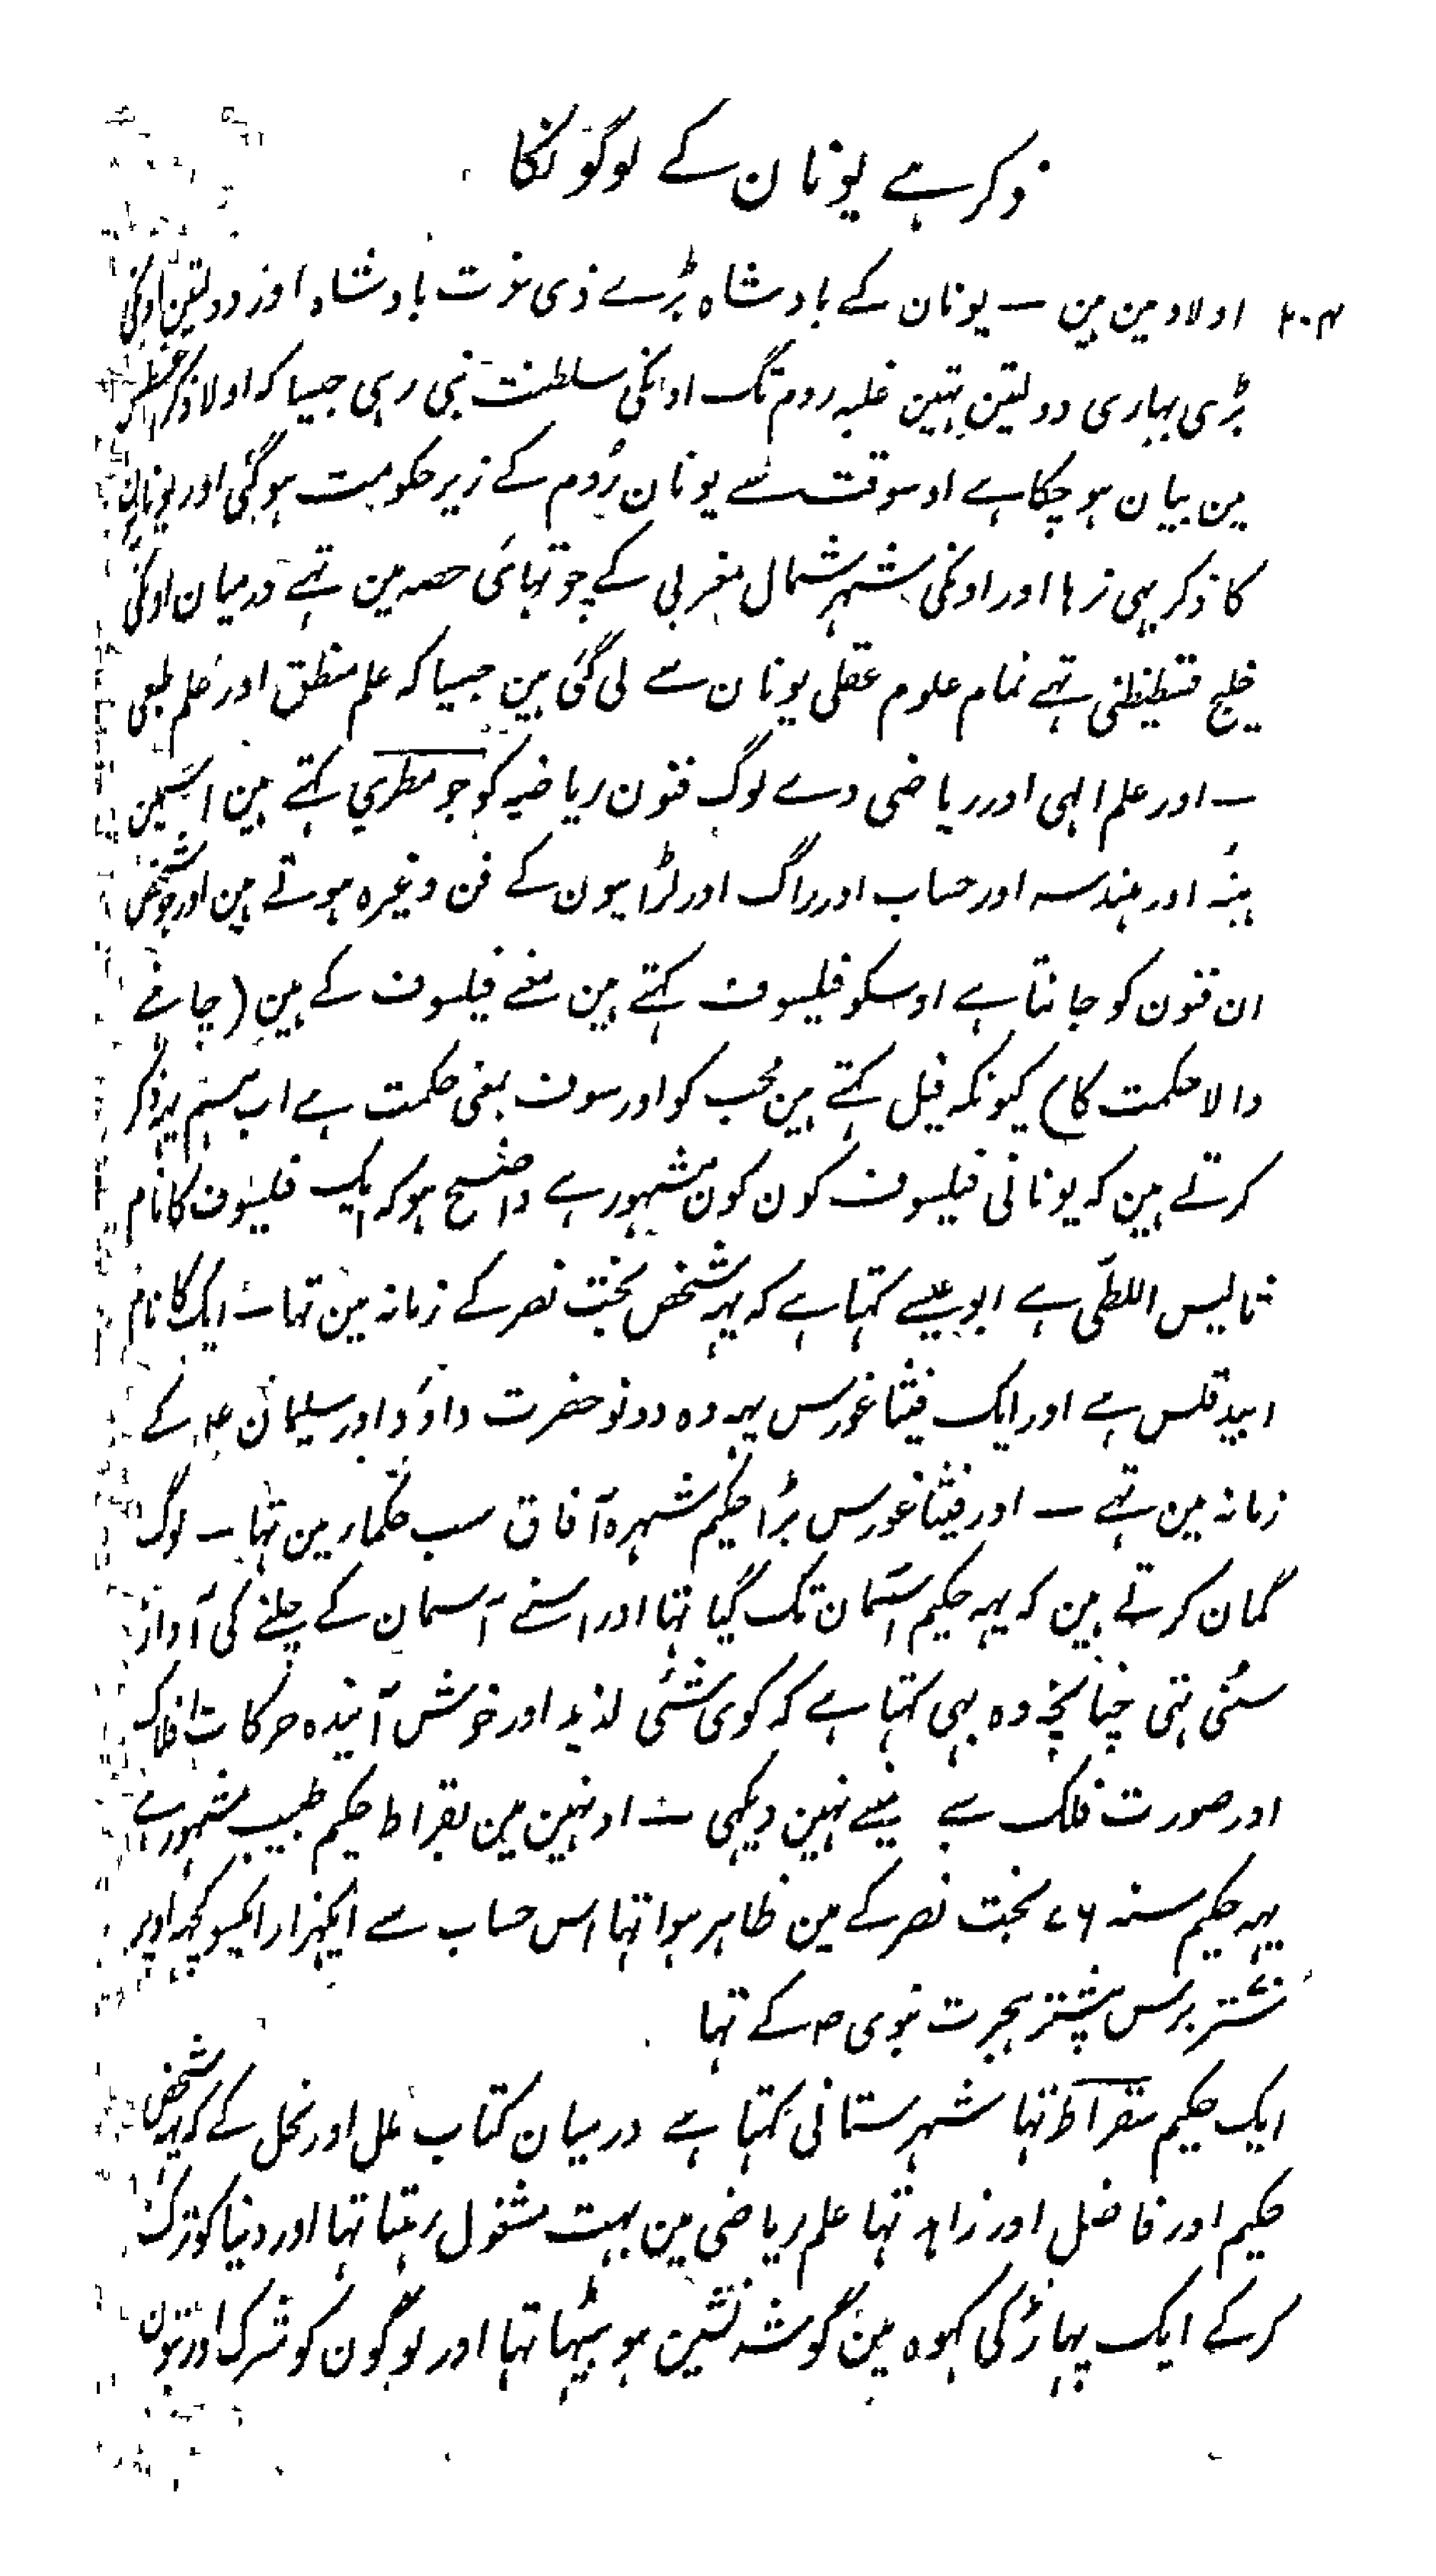 ذکر ہے یونان کے لوگونکا
۲۰۴ اولاد مین ہین — یونان کے بادشاہ بڑے ذی عزت بادشاہ اور دولتین اونکی
بڑی بہاری دولتین تہین غلبہ روم تک اونکی سلطنت بنی رہی جیسا کہ اولا ذکر
مین بیان ہو چکا ہے اوسوقت سے یونان روم کے زیر حکومت ہو گئی اور یونان
کا ذکر بہی نرہا اور اونکی شہر شمال مغربی کے چوتہائی حصہ مین تہے درمیان اونکی
خلیج قسطنطنی تہے تمام علوم عقلی یونان سے لی گئی ہین جیسا کہ علم منطق اور علم طبعی
— اور علم الہی اور ریاضی وے لوگ فنون ریاضیہ کو جومطری کہتے ہین اسمین
ہیئہ اور ہندسہ اور حساب اور راگ اور لڑائیون کے فن وغیرہ ہوتے ہین اور جو شخص
ان فنون کو جانتا ہے اوسکو فیلسوف کہتے ہین معنے فیلسوف کے ہین (جاننے
والا حکمت کا) کیونکہ فیل کہتے ہین محب کو اور سوف بمعنی حکمت ہے اب ہم یہ ذکر
کرتے ہین کہ یونانی فیلسوف کون کون مشہور ہے واضح ہو کہ ایک فیلسوف کا نام
ثالیس الملطی ہے ابو عیسے کہتا ہے کہ یہہ شخص بخت نصر کے زمانہ مین تہا — ایک کا نام
ابیدقلس ہے اور ایک فیثاغورس یہہ وہ دونو حضرت داؤد اور سلیمان ع کے
زمانہ مین تہے — اور فیثاغورس بڑا حکیم شہرہ آفاق سب حکمار مین تہا — لوگ
گمان کرتے ہین کہ یہہ حکیم آسمان تک گیا تہا اور اسنے آسمان کے چلنے کی آواز
سنی تہی چنانچہ وہ بہی کہتا ہے کہ کوی شئی لذیذ اور خوش آیندہ حرکات افلاک
اور صورت فلک سے مینے نہین دیکہی — اونہین مین بقراط حکیم طبیب مشہور ہے
یہہ حکیم سنہ ۷۶ بخت نصر کے مین ظاہر ہوا تہا اس حساب سے ایکہزار ایکسو کچہہ اوپر
ستر برس پیشتر ہجرت نبوی ص کے تہا
ایک حکیم سقراط تہا شہرستانی کہتا ہے درمیان کتاب ملل اور نحل کے کہ یہہ شخص
حکیم اور فاضل اور زاہد تہا علم ریاضی مین بہت مشغول رہتا تہا اور دنیا کو ترک
کرکے ایک پہاڑ کی کہوہ مین گوشہ نشین ہو بیٹہا تہا اور لوگون کو شرک اور بتون